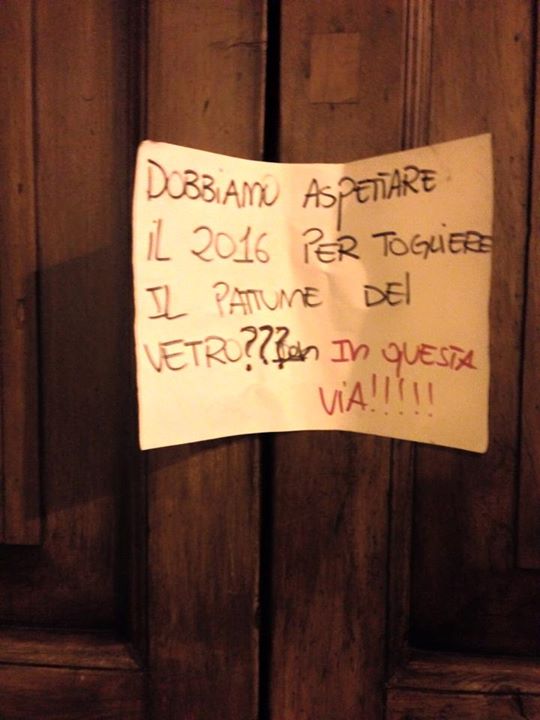 DOBBIAMO ASPETTARE
IL 2016 PER TOGLIERE
IL PATTUME DEl
VETRO??? In QUESTA
VIA!!!!!